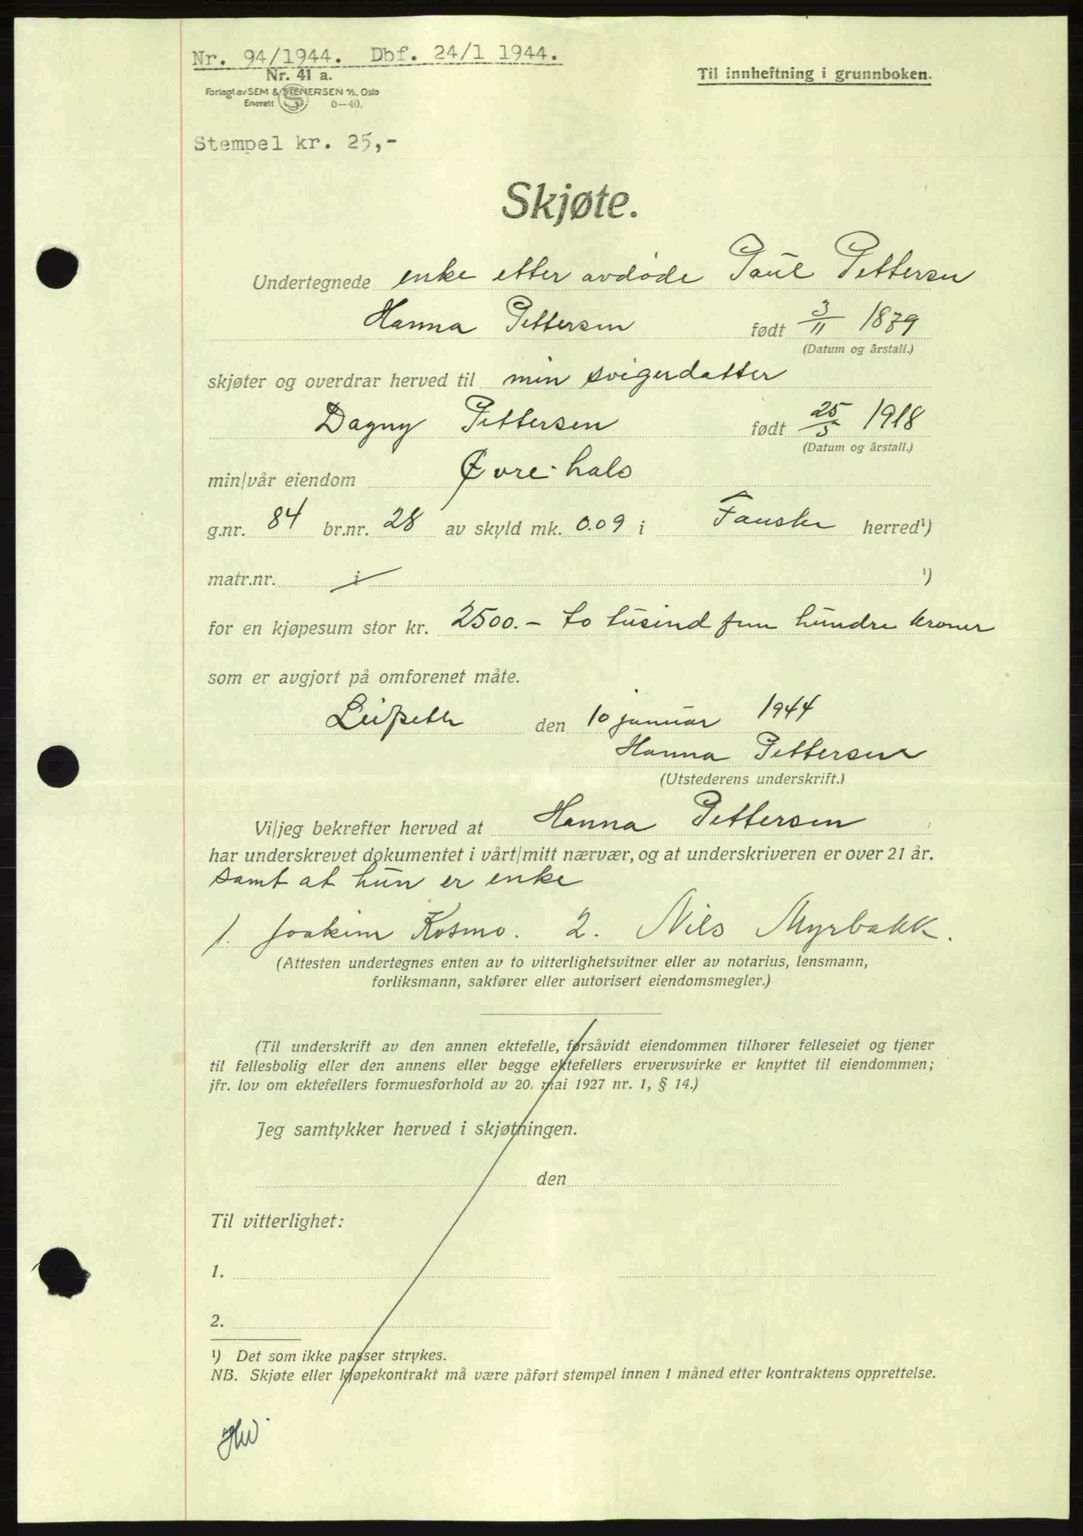 Nr. 94/1944. Dbf. 24/1 1944.
Nr. 41 a.
Til innheftning i grunnboken.
Forlagt av SEM & STENERSEN A/S, Oslo
Enerett S 6—40.
Stempel kr. 25,-
Skjøte.
Undertegnede enke etter avdøde Paul Pettersen
Hanna Pettersen født 3/11 1879
(Datum og årstall.)
skjøter og overdrar herved til min svigerdatter
Dagny Pettersen født 25/5 1918
(Datum og årstall.)
min/vår eiendom Øvre-hals
g.nr. 84 br.nr. 28 av skyld mk. 0.09 i Fauske herred¹)
matr.nr. i ¹)
for en kjøpesum stor kr. 2500.- to tusind fem hundre kroner
som er avgjort på omforenet måte.
den 10 januar 1944
Hanna Pettersen
(Utstederens underskrift.)
Vi/jeg bekrefter herved at Hanna Pettersen
har underskrevet dokumentet i vårt/mitt nærvær, og at underskriveren er over 21 år.
samt at hun er enke
1. Joakim Kosmo. 2. Nils Myrbakk.
(Attesten undertegnes enten av to vitterlighetsvitner eller av notarius, lensmann,
forliksmann, sakfører eller autorisert eiendomsmegler.)
(Til underskrift av den annen ektefelle, forsåvidt eiendommen tilhører felleseiet og tjener
til fellesbolig eller den annens eller begge ektefellers ervervsvirke er knyttet til eiendommen;
jfr. lov om ektefellers formuesforhold av 20. mai 1927 nr. 1, § 14.)
Jeg samtykker herved i skjøtningen.
den
Til vitterlighet:
1.
2.
¹) Det som ikke passer strykes.
NB. Skjøte eller kjøpekontrakt må være påført stempel innen 1 måned etter kontraktens opprettelse.